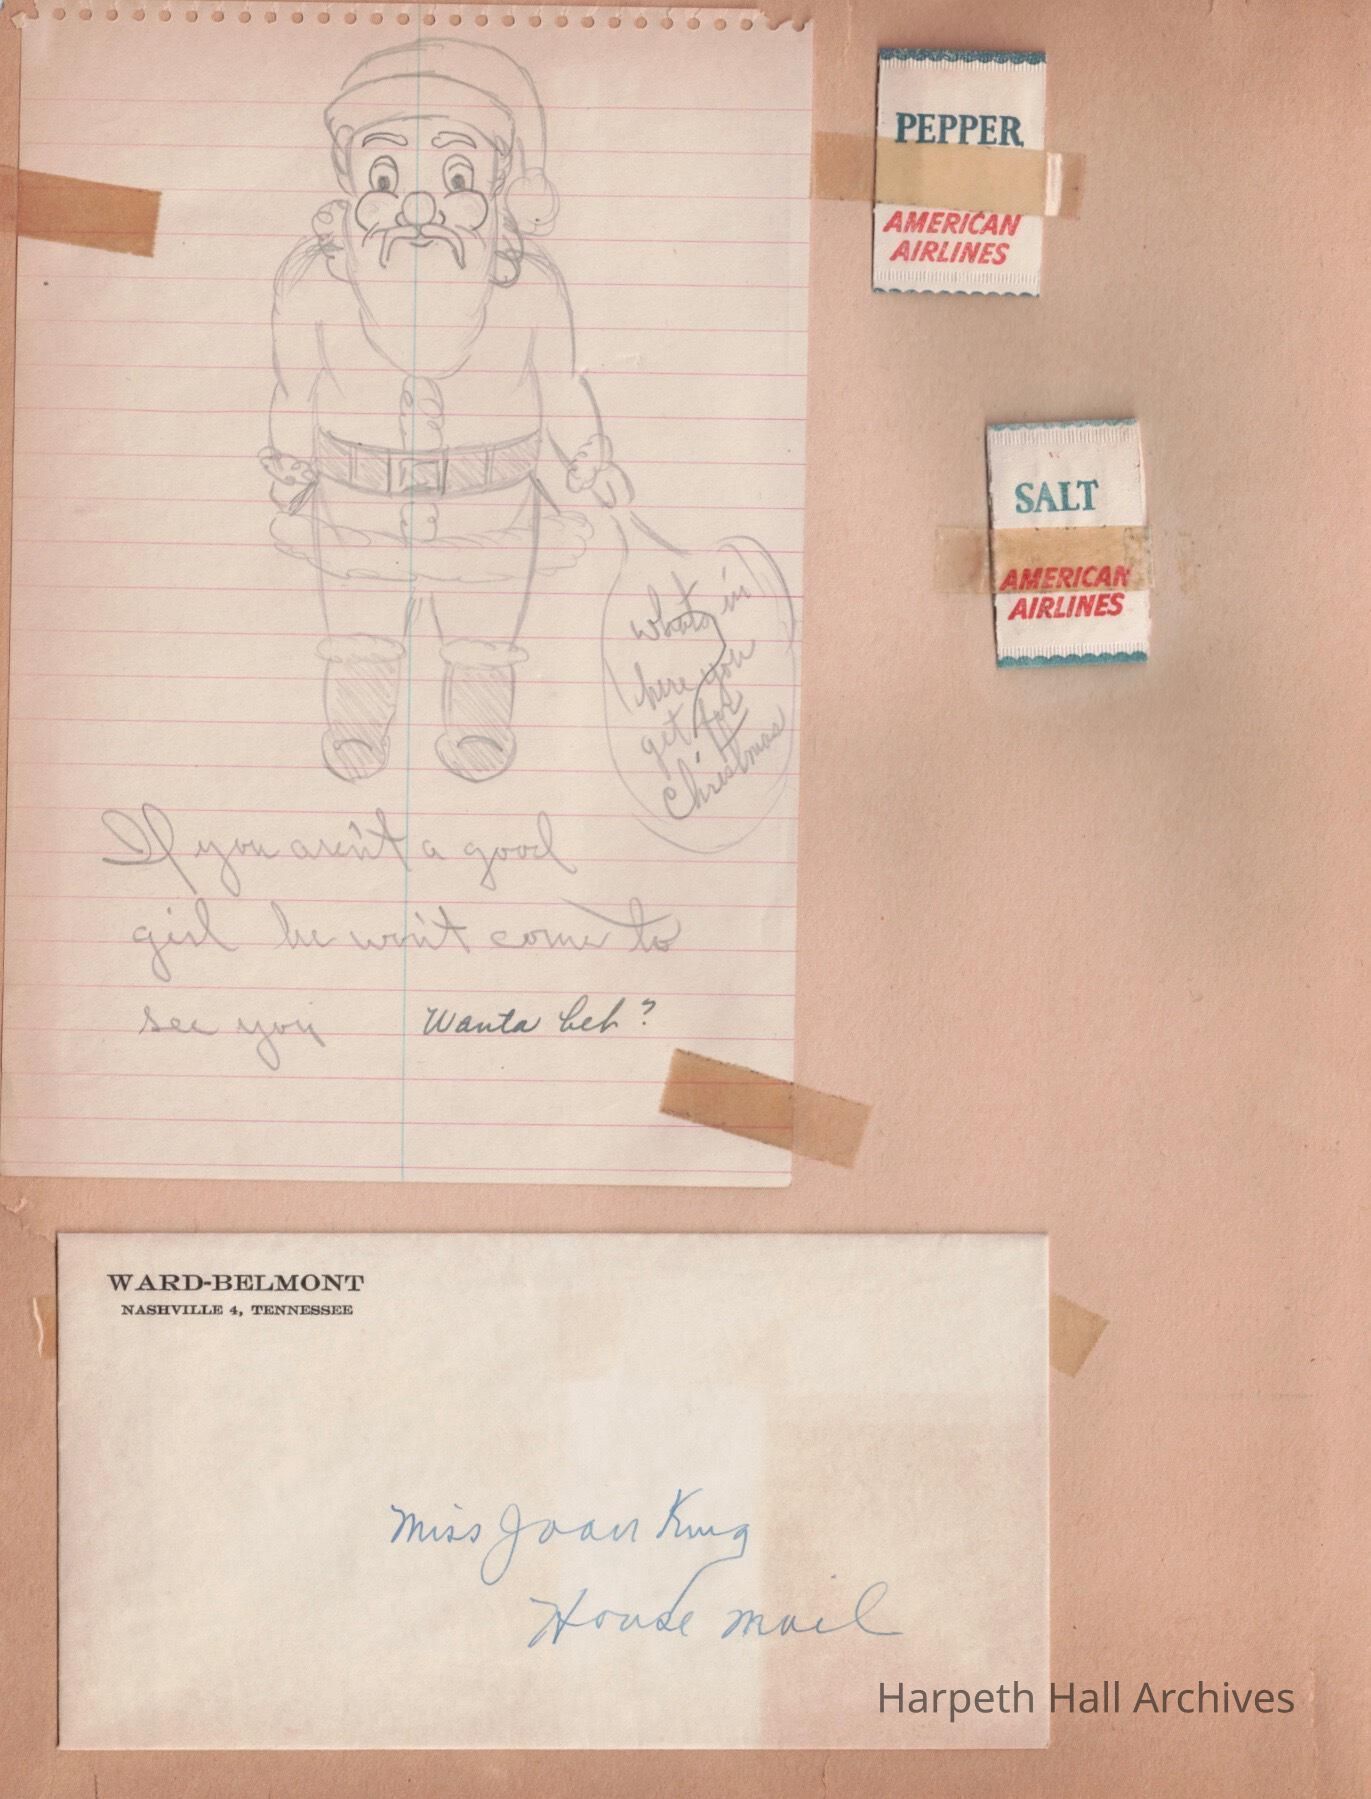 PEPPER
AMERICAN
AIRLINES
SALT
AMERICAN
AIRLINES
whats in
here you
get for
Christmas
If you aren't a good
girl he won't come to
see you Wanta bet?
WARD-BELMONT
NASHVILLE 4, TENNESSEE
Miss Joan King
House mail
Harpeth Hall Archives